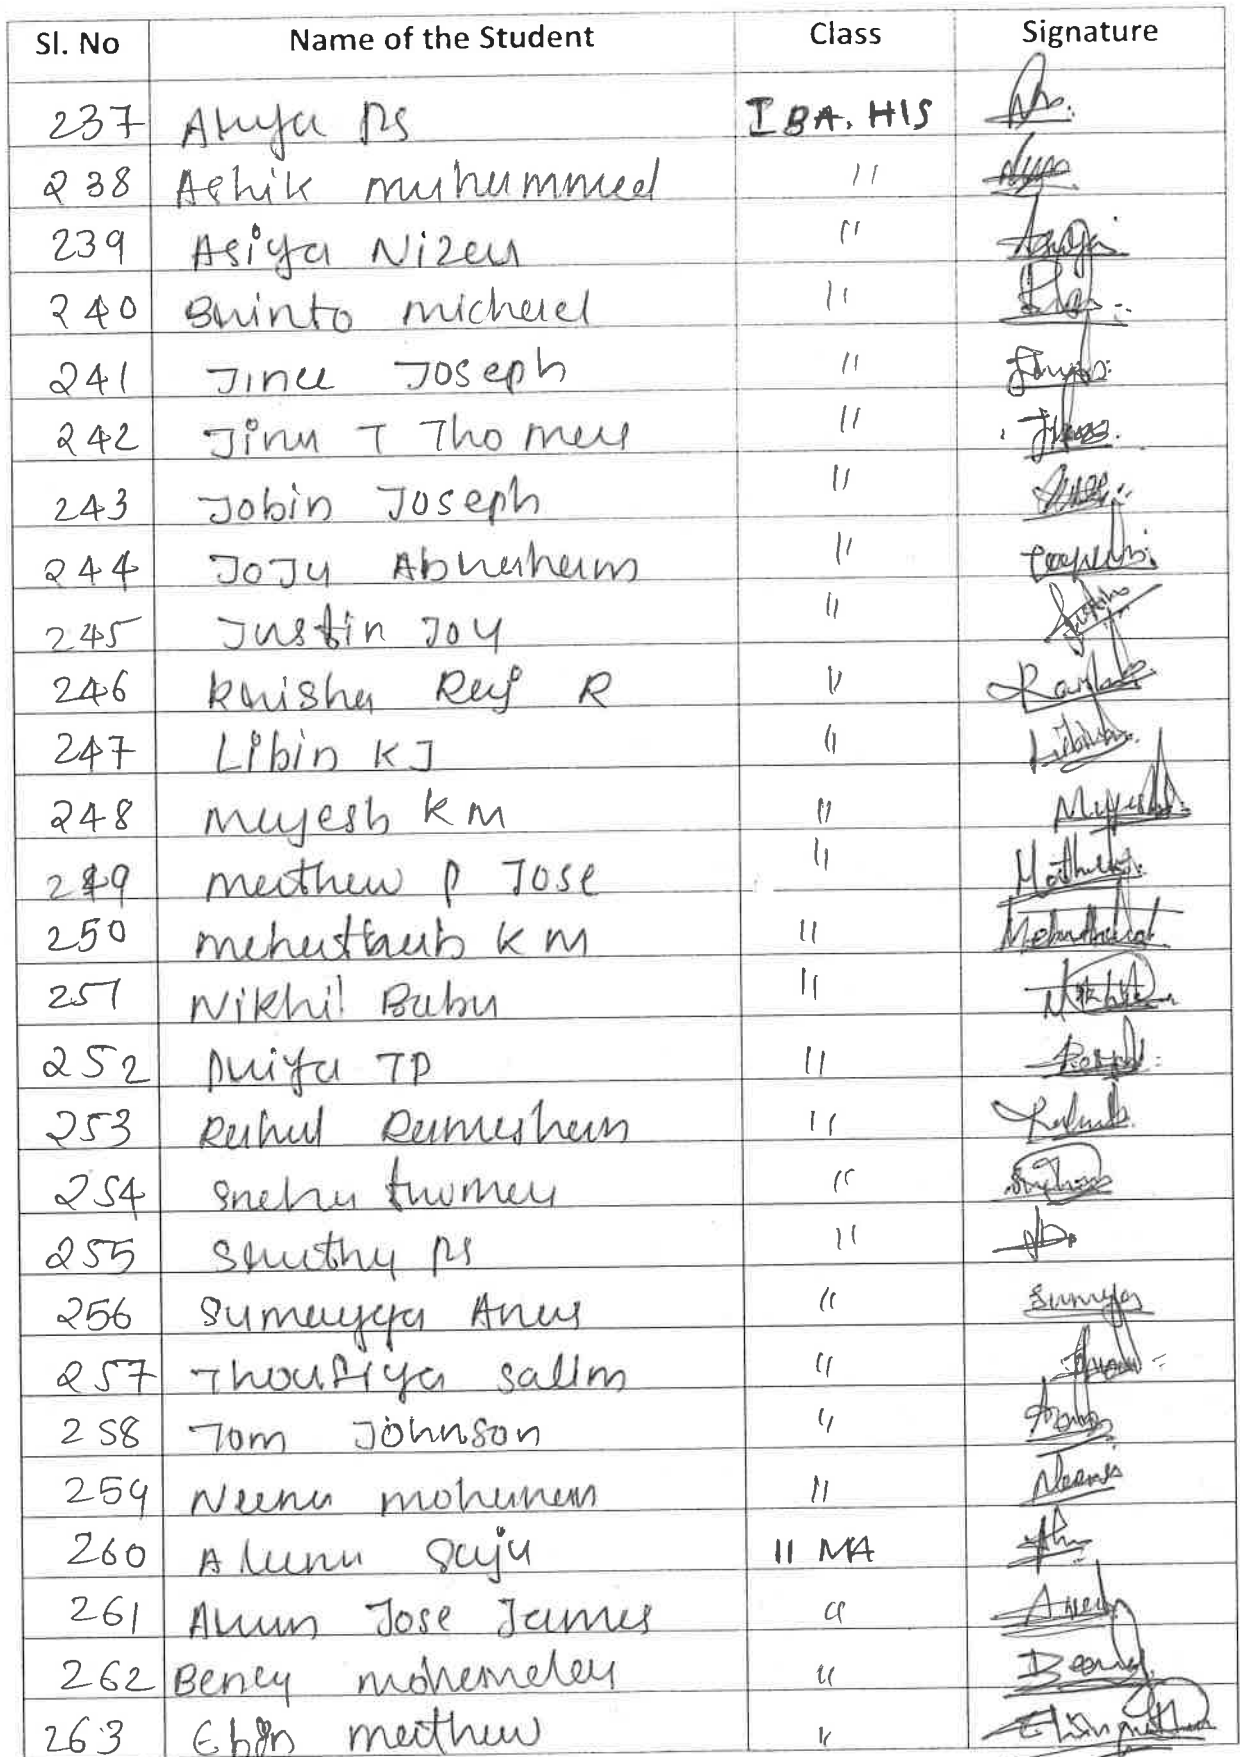 Sl. No Name of the Student Class Signature
237 Arya PS I BA. HIS
238 Ashik muhammed "
239 Asiya Nizar "
240 Brinto michael "
241 Jince Joseph "
242 Jinu T Thomas "
243 Jobin Joseph "
244 JoJy Abraham "
245 Justin Joy "
246 Krisha Raj R "
247 Libin KJ "
248 Majesh K M "
249 mathew P Jose "
250 K M "
251 Nikhil Babu "
252 TP "
253 Rahul Rameshan "
254 Sneha thomas "
255 Sruthy PS "
256 Sumayya Anas "
257 Thoufiya salim "
258 Tom Johnson "
259 Neenu mohanan "
260 Aleena Saju II MA
261 Arun Jose James "
262 Beney "
263 Ebin mathew "